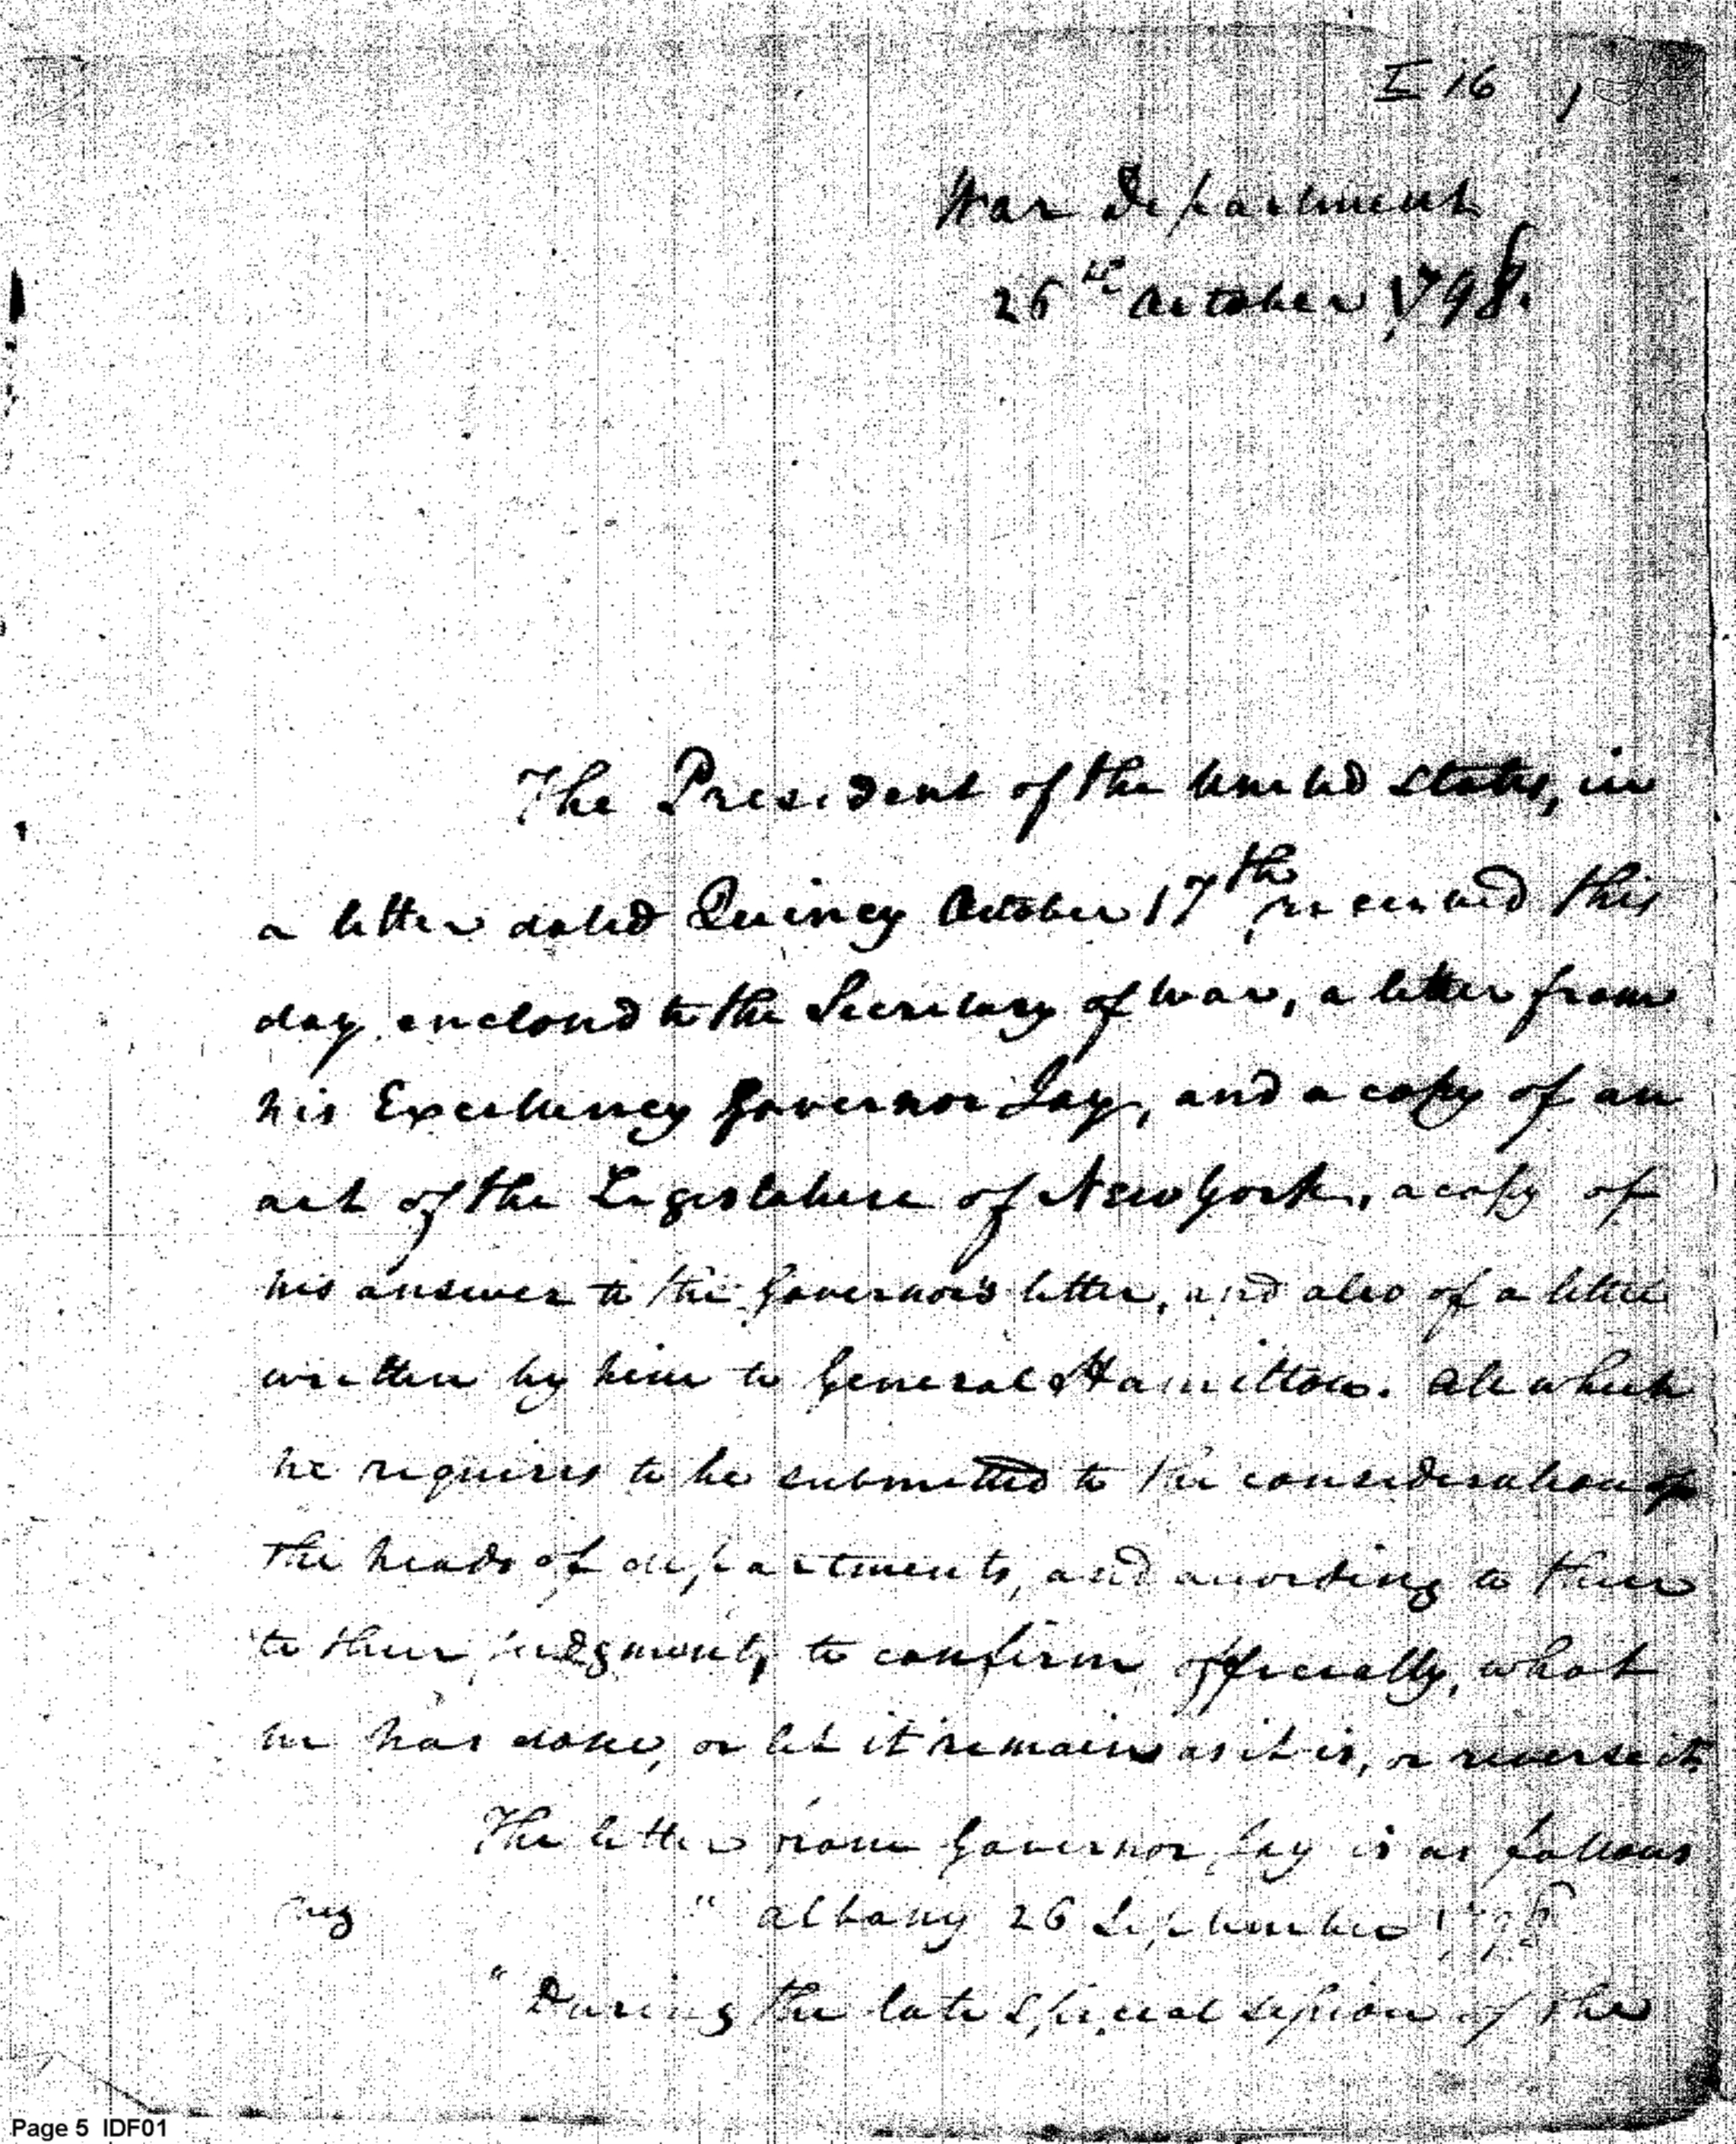 I 16 1
War Department
26th October 1798.
The President of the United States, in
a letter dated Quincy October 17th received this
day, enclosed to the Secretary of War, a letter from
his Excellency Governor Jay, and a copy of an
act of the Legislature of New York, a copy of
his answer to the Governor's letter, and also of a letter
written by him to General Hamilton. All which
he requires to be submitted to the consideration of
the heads of departments, and according to their
to their judgment, to confirm officially, what
he has done, or let it remain as it is, or reverse it.
The letter from Governor Jay is as follows
" Albany 26 September 1798
" During the late special session of the
Page 5 IDF01